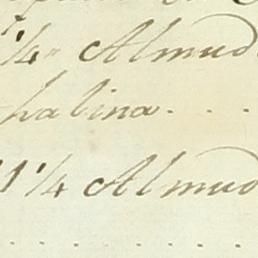 1/4 Almud
halina. . . .
1 1/4 Almud
. . . . . . . . .